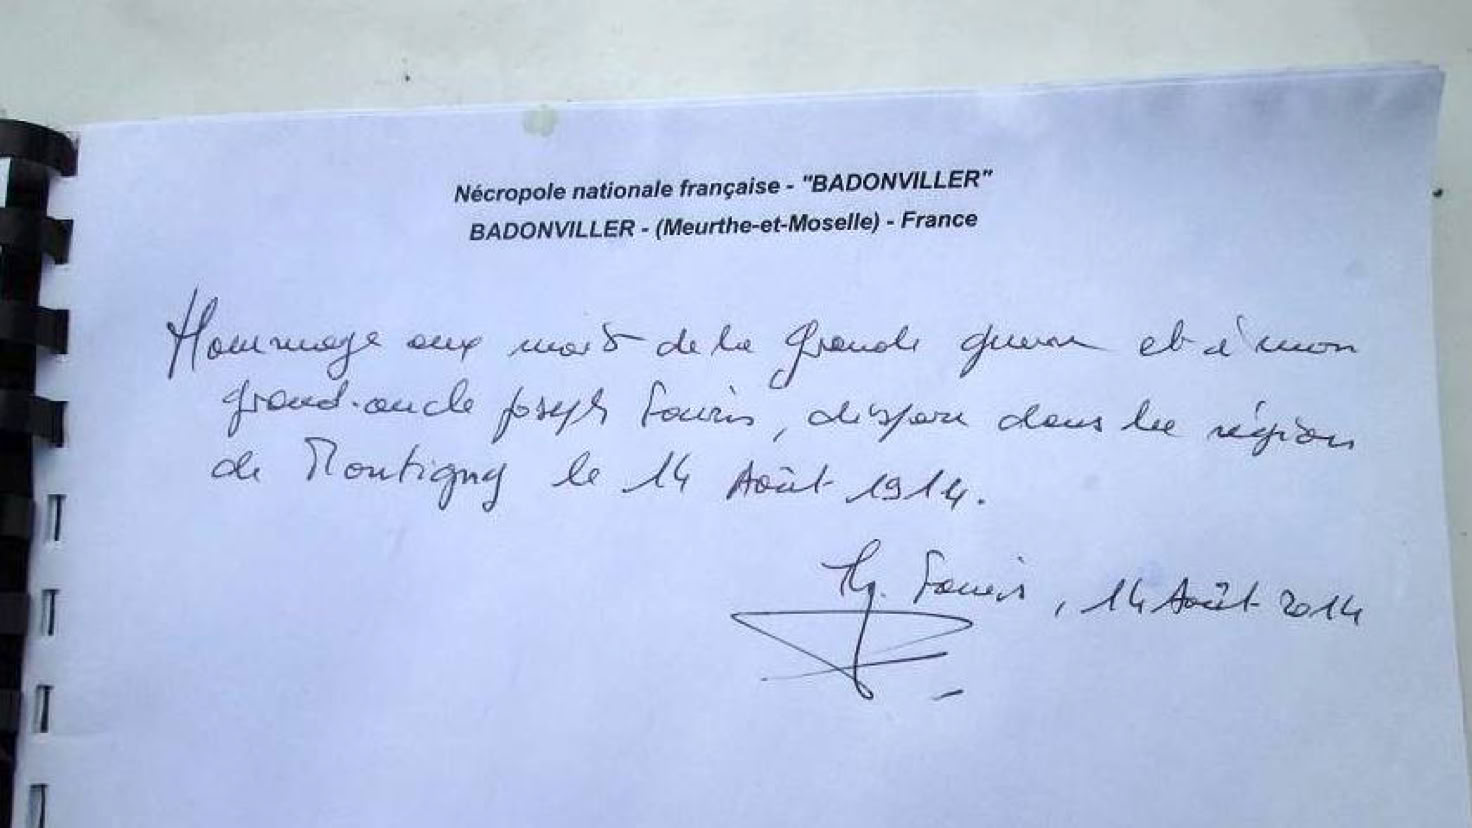 Nécropole nationale française - "BADONVILLER"
BADONVILLER - (Meurthe-et-Moselle) - France
Hommage aux morts de la Grande guerre et à mon
grand-oncle Joseph Souris, disparu dans la région
de Montigny le 14 Août 1914.
Souris, 14 Août 2014